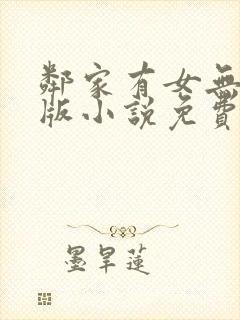 鄰家有女無
版小說免費
墨旱蓮